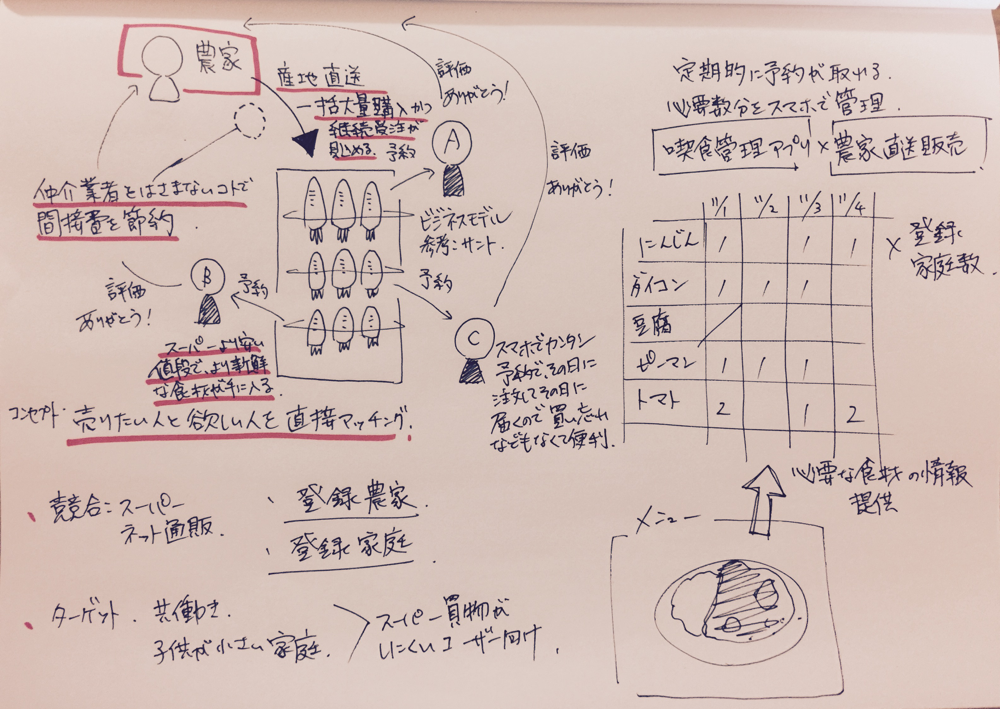 農家
産地直送
一括大量購入かつ
継続受注が
見込める.
予約
評価
ありがとう!
A
ビジネスモデル
参考:サント.
仲介業者をはさまないコトで
間接費を節約
評価
ありがとう!
B
予約
スーパーより安い
値段で、より新鮮
な食材が手に入る.
予約
C
スマホでカンタン
予約で、その日に
注文してその日に
届くので買い忘れ
などもなくて便利.
評価
ありがとう!
コンセプト. 売りたい人と欲しい人を直接マッチング.
、競合:スーパー
ネット通販.
、登録農家.
、登録家庭.
、ターゲット. 共働き.
子供が小さい家庭.
スーパー買物が
しにくいユーザー向け.
定期的に予約が取れる.
必要数分をスマホで管理.
喫食管理アプリ×農家直送販売
11/1 11/2 11/3 11/4
にんじん 1 1 1
ダイコン 1 1 1
豆腐
ピーマン 1 1 1
トマト 2 1 2
×登録
家庭数.
必要な食材の情報
提供
メニュー